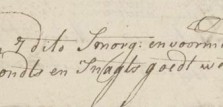 7 dito Smorg: en voorm
ondts en Snagts goedt we